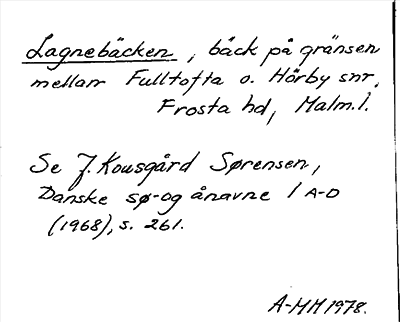 Lagnebäcken, bäck på gränsen
mellan Fulltofta o. Hörby snr,
Frosta hd, Malm.l.
Se J. Kousgård Sørensen,
Danske sø- og ånavne 1 A-D
(1968), s. 261.
A-MH 1978.